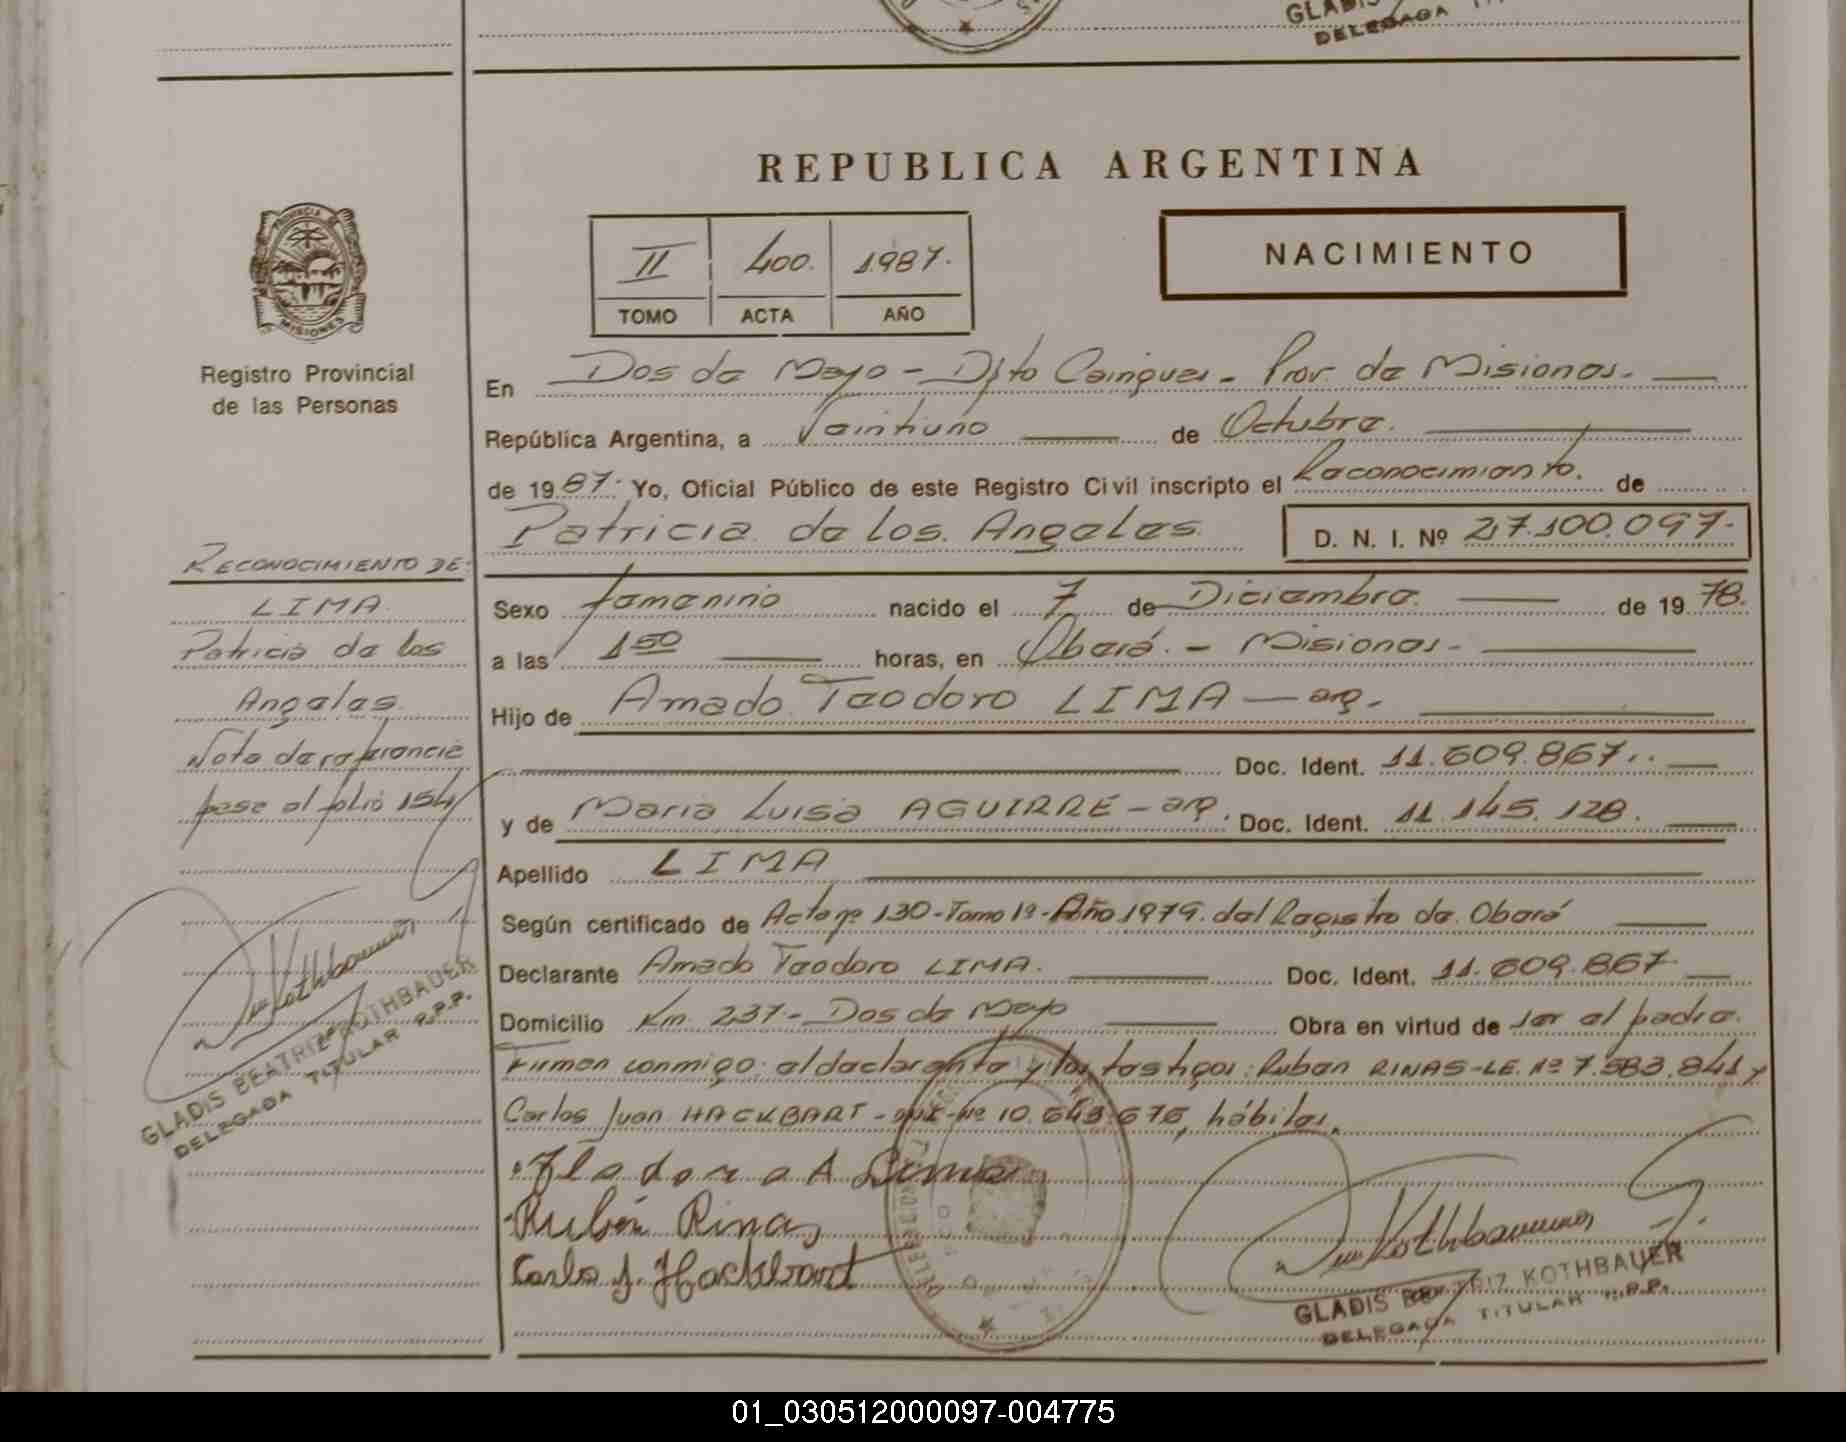 GLADIS
DELEGADA TI
REPUBLICA ARGENTINA
II 400. 1987.
TOMO ACTA AÑO
NACIMIENTO
PROVINCIA DE
MISIONES
Registro Provincial
de las Personas
En Dos de Mayo - Dpto Cainguas - Prov. de Misiones.
República Argentina, a Veintiuno de Octubre.
de 1987. Yo, Oficial Público de este Registro Civil inscripto el Reconocimiento. de
Patricia de los Angeles. D. N. I. Nº 27.100.097.
RECONOCIMIENTO DE:
LIMA
Patricia de los
Angeles
Nota de referencia
pasa al folio 154
Sexo femenino nacido el 7 de Diciembre. de 1978.
a las 1 50 horas, en Oberá. - Misiones.
Hijo de Amado Teodoro LIMA - arg.
Doc. Ident. 11.609.867.
y de Maria Luisa AGUIRRE - arg. Doc. Ident. 11.145.128.
Apellido LIMA
Según certificado de Acta nº 130 - Tomo 1º - Año 1979. del Registro de Oberá
Declarante Amado Teodoro LIMA. Doc. Ident. 11.609.867
Domicilio Km. 237 - Dos de Mayo Obra en virtud de ser el padre.
Firman conmigo: el declarante y los testigos: Ruben RINAS - LE. Nº 7.583.841 y
Carlos Juan HACKBART - Nº 10.643.676, hábiles.
Rubén Rinas
Carlos J. Hackbart
Kothbauer
GLADIS BEATRIZ KOTHBAUER
DELEGADA TITULAR R.P.P.
Kothbauer
GLADIS BEATRIZ KOTHBAUER
DELEGADA TITULAR R.P.P.
01_030512000097-004775